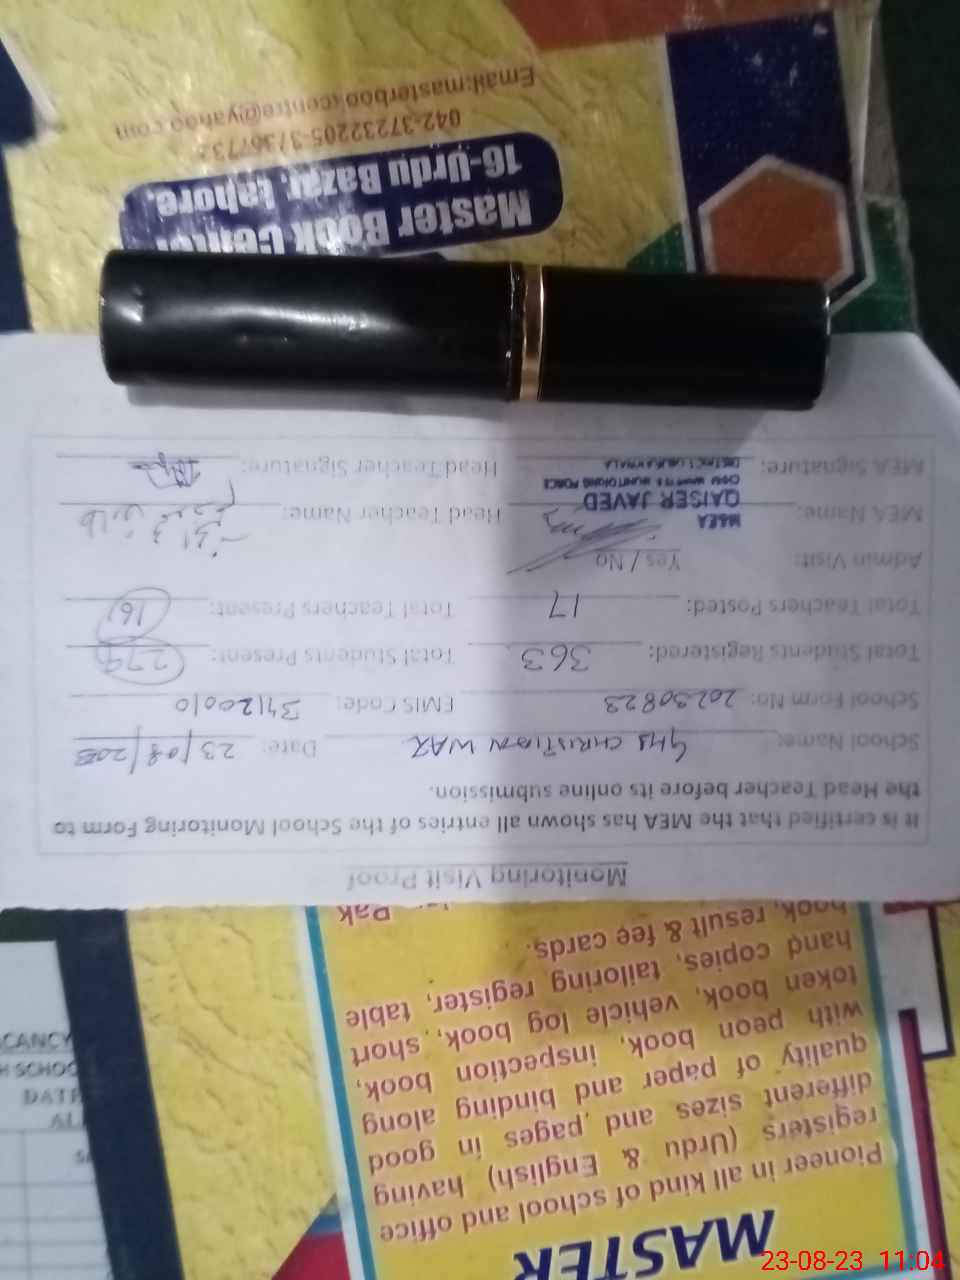 MASTER
Pioneer in all kind of school and office
registers (Urdu & English) having
different sizes and pages in good
quality of paper and binding along
with peon book, inspection book,
token book, vehicle log book, short
hand copies, tailoring register, table
book, result & fee cards.
Pak
Monitoring Visit Proof
It is certified that the MEA has shown all entries of the School Monitoring Form to
the Head Teacher before its online submission.
School Name: GHS CHRISTIAN Date: 23/08/2023
School Form No: 20230823 EMIS Code: 34120010
Total Students Registered: 363 Total Students Present: 279
Total Teachers Posted: 17 Total Teachers Present: 16
Admin Visit: Yes / No
MEA Name: Head Teacher Name:
M&EA
QAISER JAVED
MONITORING FORCE
MEA Signature: Head Teacher Signature:
Master Book
16-Urdu Bazar, Lahore.
042-37232205-
Email:
23-08-23 11:04